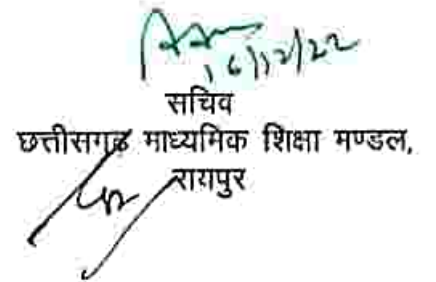 16/12/22
सचिव
छत्तीसगढ़ माध्यमिक शिक्षा मण्डल,
रायपुर